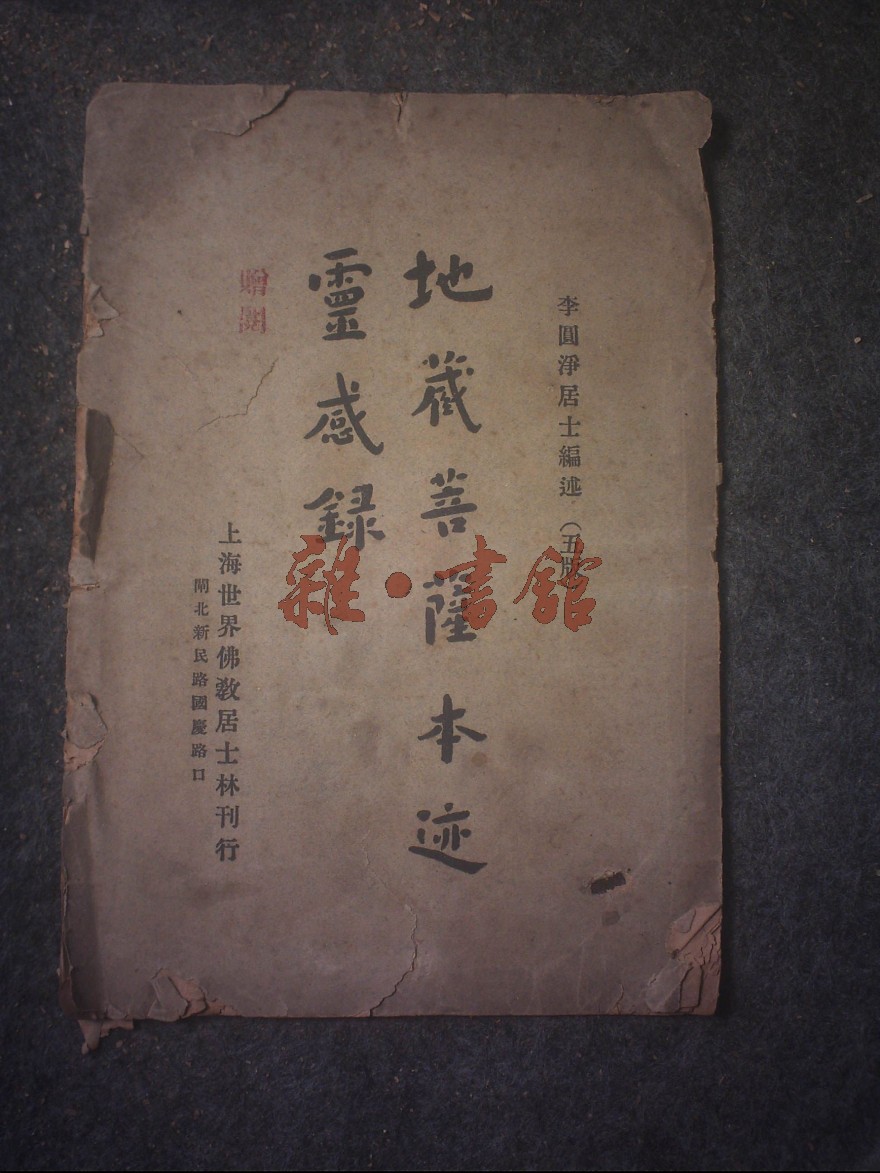 李圓淨居士編述（五版）
地藏菩薩本迹
靈感錄
贈閱
上海世界佛教居士林刊行
閘北新民路國慶路口
雜·書館